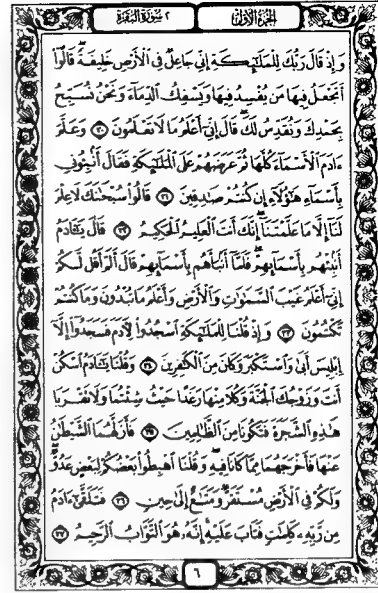 الجزء الأول
٢ سورة البقرة
وَإِذْ قَالَ رَبُّكَ لِلْمَلَٰٓئِكَةِ إِنِّي جَاعِلٌ فِي ٱلْأَرْضِ خَلِيفَةً قَالُوٓا۟
أَتَجْعَلُ فِيهَا مَن يُفْسِدُ فِيهَا وَيَسْفِكُ ٱلدِّمَآءَ وَنَحْنُ نُسَبِّحُ
بِحَمْدِكَ وَنُقَدِّسُ لَكَ قَالَ إِنِّيٓ أَعْلَمُ مَا لَا تَعْلَمُونَ ٣٠ وَعَلَّمَ
ءَادَمَ ٱلْأَسْمَآءَ كُلَّهَا ثُمَّ عَرَضَهُمْ عَلَى ٱلْمَلَٰٓئِكَةِ فَقَالَ أَنۢبِـُٔونِي
بِأَسْمَآءِ هَٰٓؤُلَآءِ إِن كُنتُمْ صَٰدِقِينَ ٣١ قَالُوا۟ سُبْحَٰنَكَ لَا عِلْمَ
لَنَآ إِلَّا مَا عَلَّمْتَنَآ إِنَّكَ أَنتَ ٱلْعَلِيمُ ٱلْحَكِيمُ ٣٢ قَالَ يَٰٓـَٔادَمُ
أَنۢبِئْهُم بِأَسْمَآئِهِمْ فَلَمَّآ أَنۢبَأَهُم بِأَسْمَآئِهِمْ قَالَ أَلَمْ أَقُل لَّكُمْ
إِنِّيٓ أَعْلَمُ غَيْبَ ٱلسَّمَٰوَٰتِ وَٱلْأَرْضِ وَأَعْلَمُ مَا تُبْدُونَ وَمَا كُنتُمْ
تَكْتُمُونَ ٣٣ وَإِذْ قُلْنَا لِلْمَلَٰٓئِكَةِ ٱسْجُدُوا۟ لِـَٔادَمَ فَسَجَدُوٓا۟ إِلَّآ
إِبْلِيسَ أَبَىٰ وَٱسْتَكْبَرَ وَكَانَ مِنَ ٱلْكَٰفِرِينَ ٣٤ وَقُلْنَا يَٰٓـَٔادَمُ ٱسْكُنْ
أَنتَ وَزَوْجُكَ ٱلْجَنَّةَ وَكُلَا مِنْهَا رَغَدًا حَيْثُ شِئْتُمَا وَلَا تَقْرَبَا
هَٰذِهِ ٱلشَّجَرَةَ فَتَكُونَا مِنَ ٱلظَّٰلِمِينَ ٣٥ فَأَزَلَّهُمَا ٱلشَّيْطَٰنُ
عَنْهَا فَأَخْرَجَهُمَا مِمَّا كَانَا فِيهِ وَقُلْنَا ٱهْبِطُوا۟ بَعْضُكُمْ لِبَعْضٍ عَدُوٌّ
وَلَكُمْ فِي ٱلْأَرْضِ مُسْتَقَرٌّ وَمَتَٰعٌ إِلَىٰ حِينٍ ٣٦ فَتَلَقَّىٰٓ ءَادَمُ
مِن رَّبِّهِۦ كَلِمَٰتٍ فَتَابَ عَلَيْهِ إِنَّهُۥ هُوَ ٱلتَّوَّابُ ٱلرَّحِيمُ ٣٧
٦